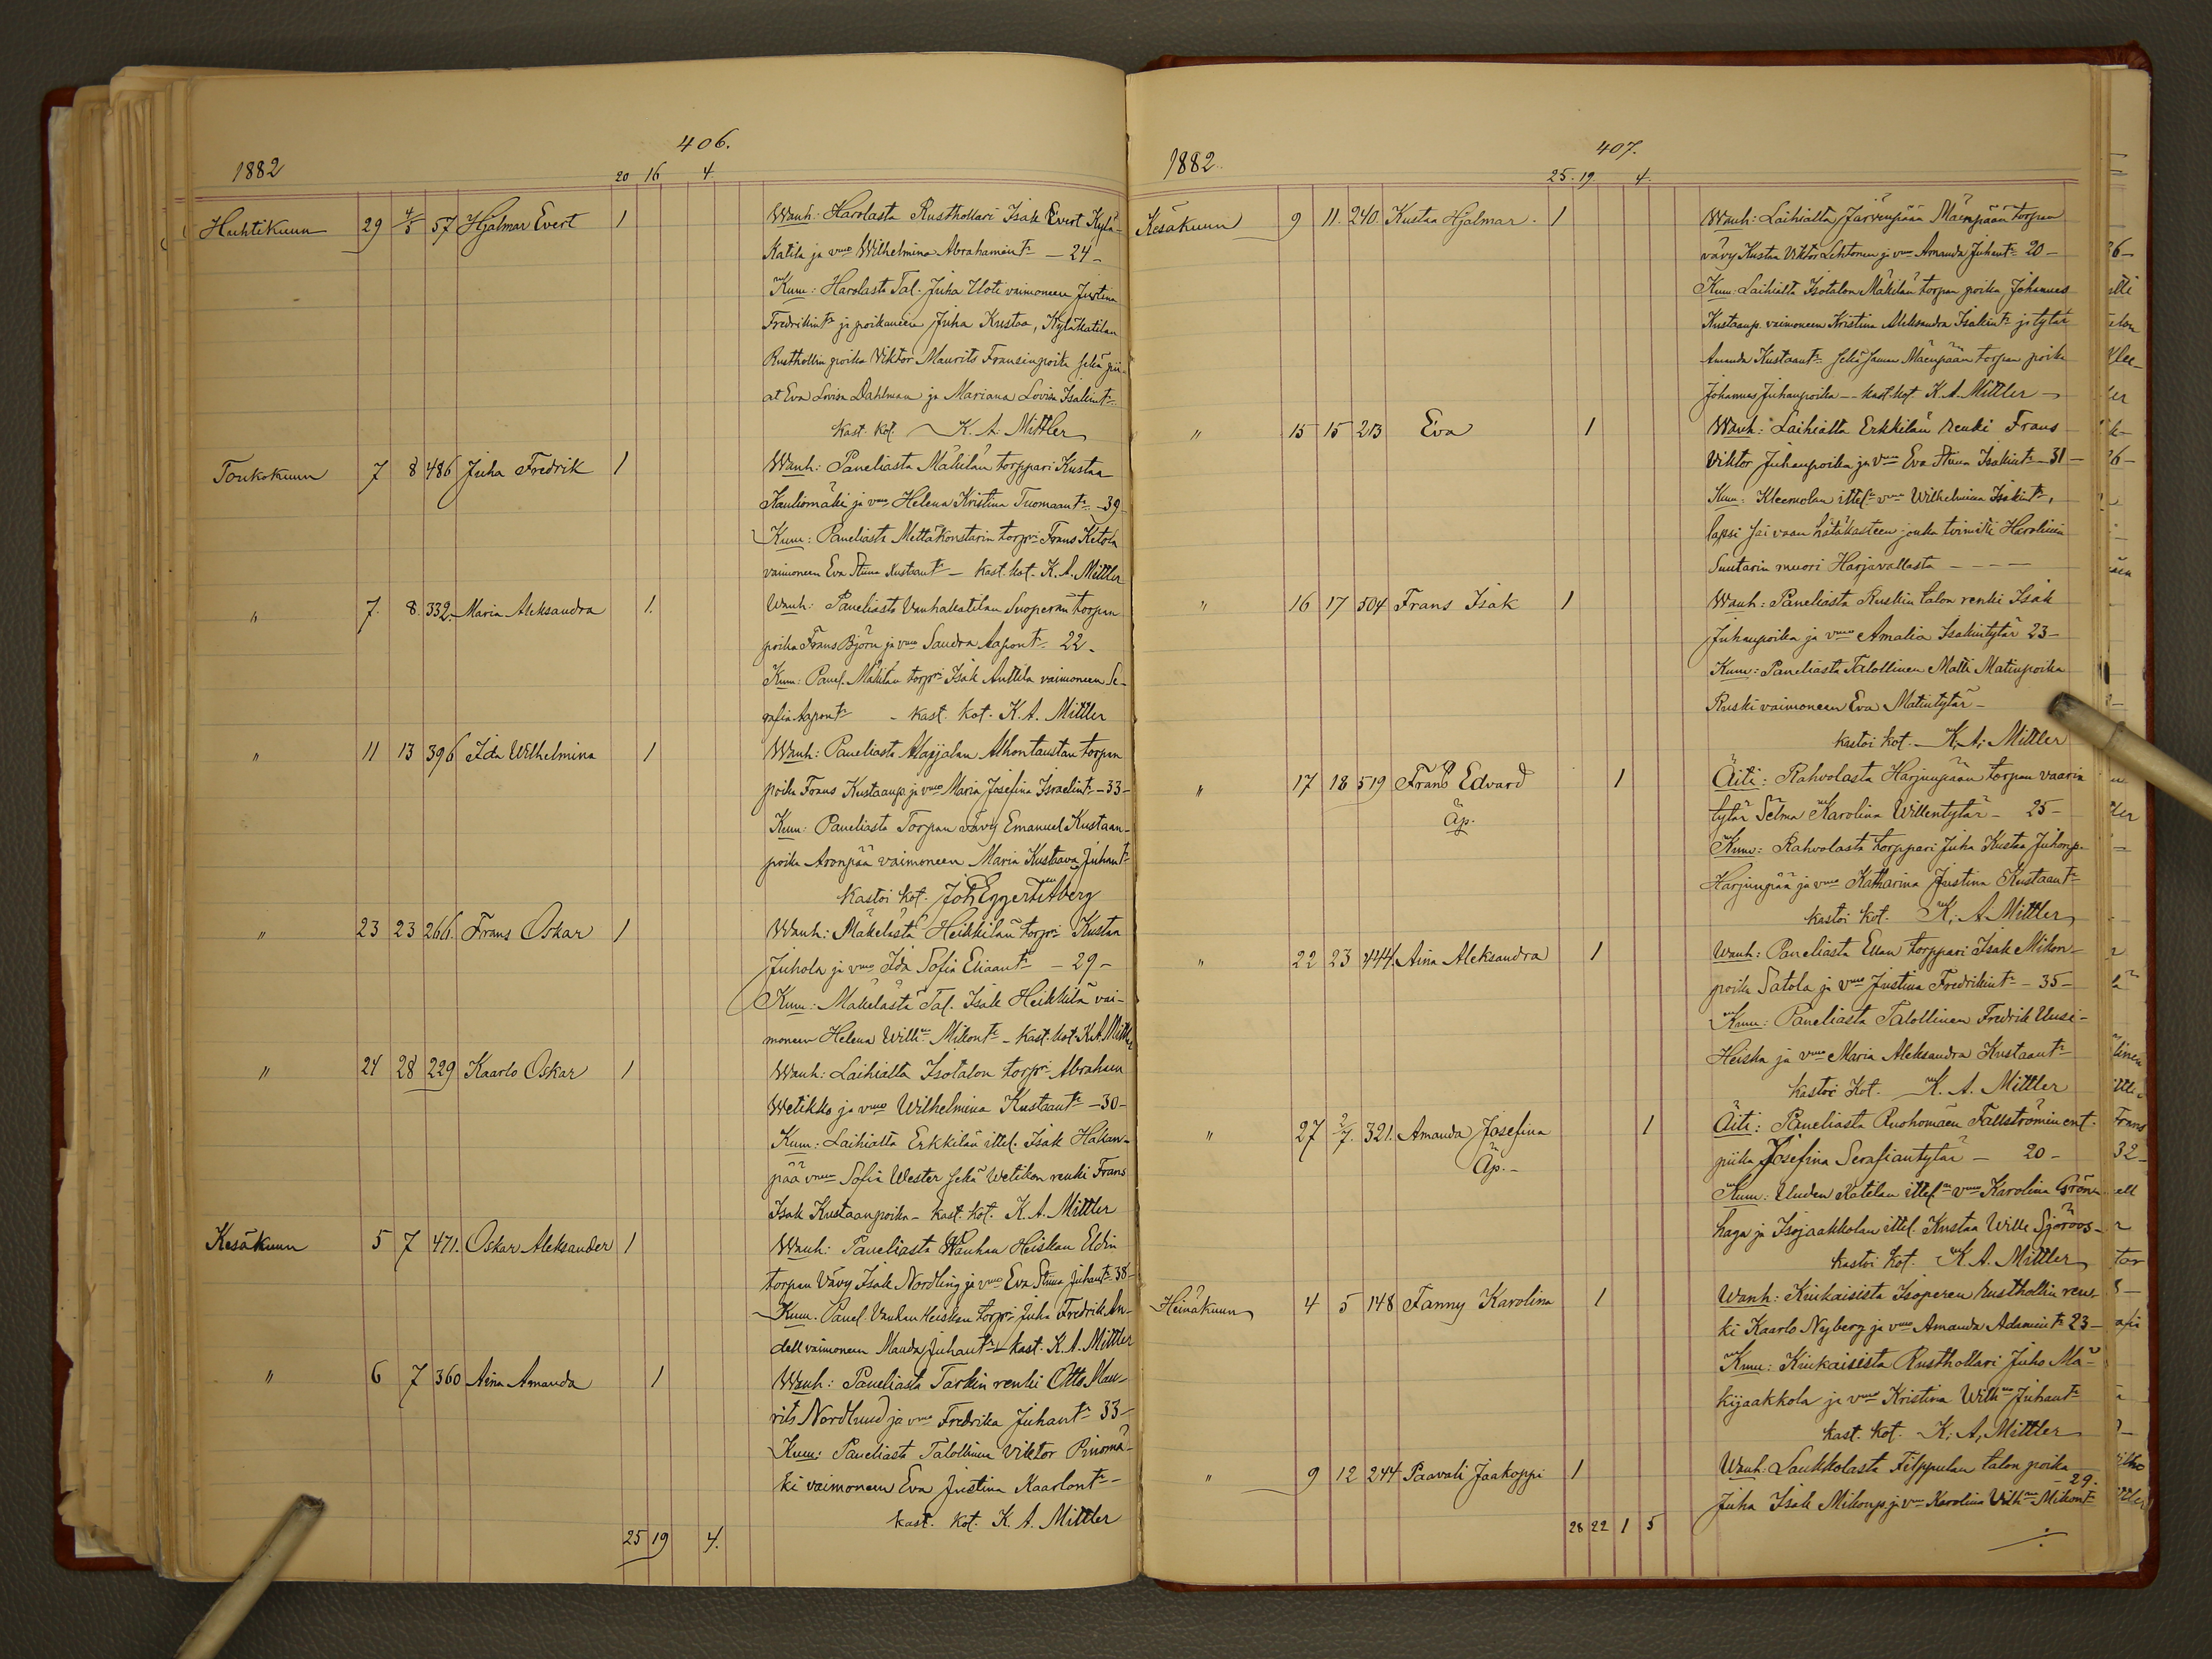 406.
1882
20 16 4.
Huhtikuun 29 4/5 57 Hjalmar Evert 1 Wanh: Harolasta Rusthollari Isak Evert Kylä-
Katila ja vmo Wilhelmina Abrahamint: - 24 -
Kum: Harolasta Tal. Juha Uoti vaimoneen Justina
Fredrikint: ja poikaneen Juha Kustaa, Kyläkatilan
Rusthollin poika Viktor Maurits Fransinpoika sekä pii-
at Eva Lovisa Dahlman ja Mariana Lovisa Isakint:
kast. kot. K. A. Mittler
Toukokuun 7 8 486 Juha Fredrik 1 Wanh: Paneliasta Mäkilän torppari Kustaa
Kauliomäki ja vmo Helena Kristina Tuomaant: - 39
Kum: Paneliasta Mettäkonstarin torpri Frans Ketola
vaimoneen Eva Stina Kustaant: - kast. kot. K. A. Mittler
" 7. 8 332. Maria Aleksandra 1. Wanh: Paneliasta Vanhakatilan Suoperän torpan
poika Frans Björn ja vmo Sandra Aapont: 22.
Kum: Panel. Mäkilän torpri Isak Anttila vaimoneen Se-
rafia Aapont: - kast. kot. K. A. Mittler
" 11 13 396 Ida Wilhelmina 1 Wanh: Paneliasta Alhontaustan torpan
poika Frans Kustaanp. ja vmo Maria Josefina Israelint: - 33 -
Kum: Paneliasta Torpan vävy Emanuel Kustaan-
poika Aronpää vaimoneen Maria Kustaava Juhant:
Kastoi kot.
" 23 23 266. Frans Oskar 1 Wanh: Mäkelästä Heikkilän torpri Kustaa
Juhola ja vmo Ida Sofia Eliaant: - 29 -
Kum: Mäkelästä Tal. Isak Heikkilä vai-
moneen Helena Wilhna Mikont: - kast. kot. K. A. Mittler
" 24 28 229 Kaarlo Oskar 1 Wanh: Laihialta Isotalon torpri Abraham
Wetikko ja vmo Wilhelmina Kustaant: - 30 -
Kum: Laihialta Erkkilän ittel. Isak Hakan-
pää vmoneen Sofia Wester sekä Wetikon renki Frans
Isak Kustaanpoika - kast. kot. K. A. Mittler
Kesäkuun 5 7 471. Oskar Aleksander 1 Wanh: Paneliasta Wanhan Heiskan Eldin
torpan vävy Isak Nordling ja vmo Eva Stina Juhant: 38 -
Kum. Panel. Vanhan Heiskan torpri Juha Fredrik An-
dell vaimoneen Manda Juhant: - kast. K. A. Mittler
" 6 7 360 Aina Amanda 1 Wanh: Paneliasta Tarkin renki Otto Mau-
rits Nordlund ja vmo Fredrika Juhant: 33 -
Kum: Paneliasta Talollinen Viktor Pinomä-
ki vaimoneen Eva Justina Kaarlont: -
kast. kot. K. A. Mittler
25 19 4.
407.
1882
25. 19 4.
Kesäkuun 9 11. 240. Kustaa Hjalmar. 1 Wanh: Laihialta Järvenpään Mäenpään torpan
vävy Kustaa Viktor Lehtonen ja vmo Amanda Juhant: 20 -
Kum: Laihialta Isotalon Mäkilän torpan poika Johannes
Kustaanp. vaimoneen Kristina Aleksandra Isakint: ja tytär
Amanda Kustaant: sekä saman Mäenpään torpan poika
Johannes Juhanpoika - - kast. kot. K. A. Mittler -
" 15 15 213 Eva 1 Wanh: Laihialta Erkkilän renki Frans
Viktor Juhanpoika ja vmo Eva Stina Isakint: - 31 -
Kum: Kleemolan ittel: vmo Wilhelmina Isakint:,
lapsi sai vaan hätäkasteen jonka toimitti Harolinin
Suutarin muori Harjavallasta - - - -
" 16 17 504 Frans Isak 1 Wanh: Paneliasta Ruskin talon renki Isak
Juhanpoika ja vmo Amalia Isakintytär 23 -
Kum: Paneliasta Talollinen Matti Matinpoika
Ruski vaimoneen Eva Matintytär -
kastoi kot. - K. A. Mittler
" 17 18 519 Frans Edvard 1 Äiti: Rahvolasta Harjunpään torpan vaarin
Äp. tytär Selma Karolina Willentytär - 25 -
Kum: Rahvolasta torppari Juha Kustaa Juhonp.
Harjunpää ja vmo Katharina Justina Kustaant:
kastoi kot. K. A. Mittler
" 22 23 444. Aina Aleksandra 1 Wanh: Paneliasta Ellan torppari Isak Mikon-
poika Satola ja vmo Justina Fredrikint: - 35 -
Kum: Paneliasta Talollinen Fredrik Uusi-
Heiska ja vmo Maria Aleksandra Kustaant:
kastoi kot. K. A. Mittler
" 27 2/7. 321. Amanda Josefina 1 Äiti: Paneliasta Ruohomäen Fallströmin ent.
Äp. - piika Josefina Serafiantytär - 20 -
Kum: Uuden Katilan ittel: vmo Karolina Grön-
haga ja Isojaakkolan ittel. Kustaa Wille Sjöroos -
kastoi kot. K. A. Mittler
Heinäkuun 4 5 148 Fanny Karolina 1 Wanh: Kiukaisista Isoperen Rusthollin ren-
ki Kaarlo Nyberg ja vmo Amanda Adamint: 23 -
Kum: Kiukaisista Rusthollari Juho Mä-
kijaakkola ja vmo Kristina Wilhna Juhant:
kast. kot. K. A. Mittler
" 9 12 244 Paavali Jaakoppi 1 Wanh: Laukkolasta Filppulan talon poika
Juha Isak Mikonp. ja vmo Karolina Vilhna Mikont: - 29.
28 22 1 5